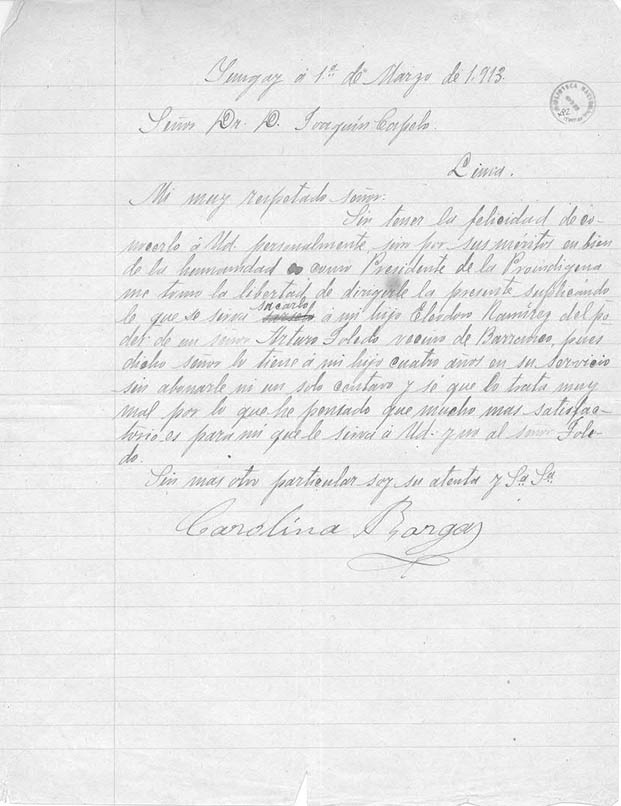 Yungay á 1º de Marzo de 1.913.
BIBLIOTECA NACIONAL
Señor Dr. D. Joaquín Capelo.
Lima.
Mi muy respetado señor:
Sin tener la felicidad de co-
nocerlo á Ud. personalmente sino por sus méritos en bien
de la humanidad como Presidente de la Proindígena
me tomo la libertad de dirigirle la presente suplicándo
le que se sirva sacarlo á mi hijo Eleodoro Ramírez del po
der de un señor Arturo Toledo vecino de Barranco, pues
dicho señor lo tiene á mi hijo cuatro años en su servicio
sin abonarle ni un solo centavo y sé que lo trata muy
mal por lo que he pensado que mucho mas satisfac-
torio es para mi que le sirva á Ud. y no al señor Tole-
do.
Sin mas otro particular soy su atenta y Sa Sa
Carolina Bargas